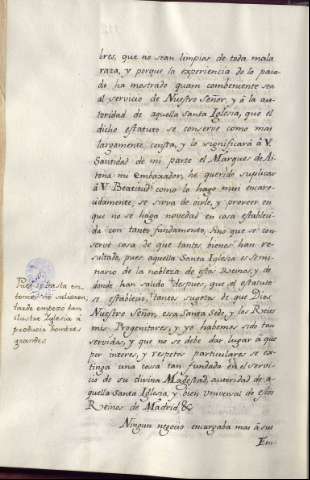 bres, que no sean limpias de toda mala
raza, y porque la experiencia de lo pasa-
do ha mostrado quam combeniente sea
al servicio de Nuestro Señor, y á la au-
toridad de aquella Santa Iglesia, que el
dicho estatuto se conserve como mas
largamente, consta, y lo significará á V.
Santidad de mi parte el Marques de Ai-
tona mi embaxador, he querido suplicar
á V. Beatitud como lo hago muy encare-
cidamente, se sirva de oirle, y proveer en
que no se haga novedad en cosa estableci-
da con tanto fundamento, sino que se con-
serve cosa de que tantos bienes han re-
sultado, pues aquella Santa Iglesia es semi-
nario de la nobleza de estos Reinos, y de
donde han salido despues, que el estatuto
se establecio, tantos sugetos de que Dios
Nuestro Señor, esa Santa Sede, y los Reies
mis Progenitores, y yo habemos sido tan
servidos, y que no se debe dar lugar á que
por interes, y respetos particulares se ex-
tinga una cosa tan fundada en el servi-
cio de su divina Magestad, autoridad de a-
quella Santa Iglesia, y bien universal de estos
Reinos de Madrid &c
Ningun negocio encargaba mas á sus
Em-
Pues si hasta en-
tonces no salieron,
tarde empezo tan
ilustre Iglesia á
producir hombres
grandes